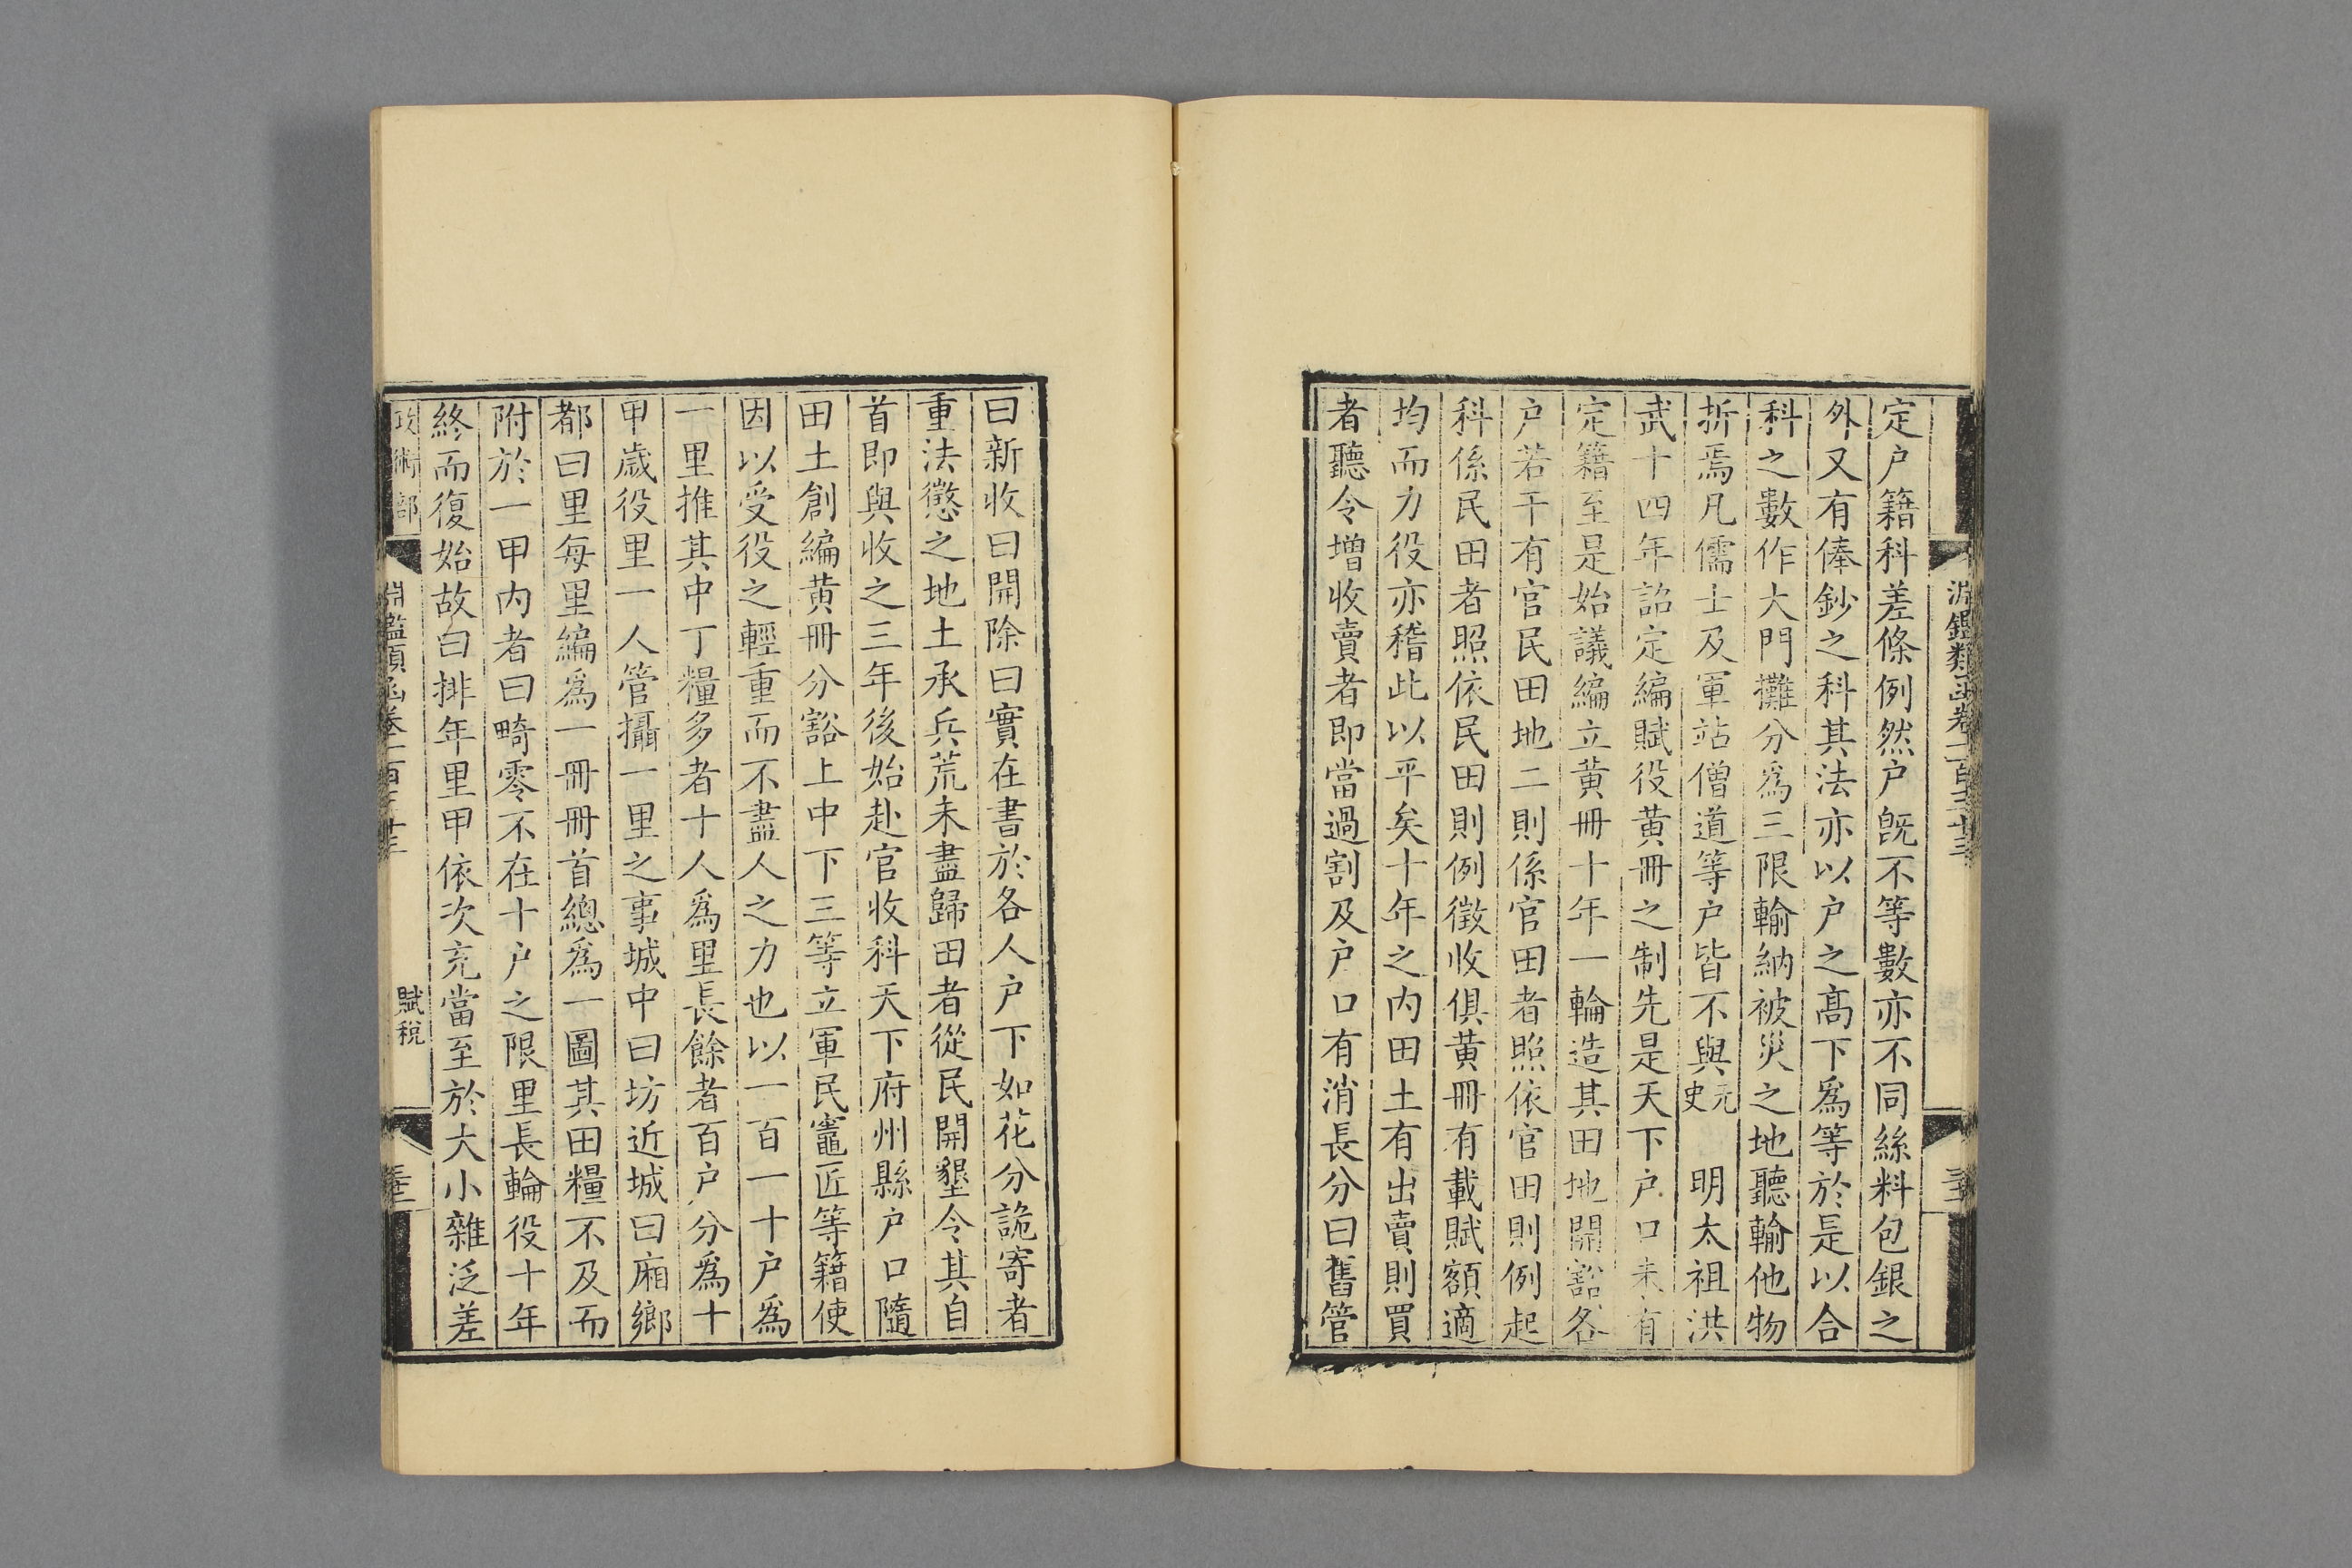 定户籍科差條例然户旣不等數亦不同絲料包銀之
外又有俸鈔之科其法亦以户之髙下爲等於是以合
科之數作大門攤分爲三限輸納被災之地聽輸他物
折焉凡儒士及軍站僧道等户皆不與元史 明太祖洪
武十四年詔定編賦役黄冊之制先是天下户口未有
定籍至是始議編立黄冊十年一輪造其田地開豁各
户若干有官民田地二則係官田者照依官田則例起
科係民田者照依民田則例徵收俱黄冊有載賦額適
均而力役亦稽此以平矣十年之内田土有出賣則買
者聽令增收賣者即當過割及户口有消長分曰舊管
曰新收曰開除曰實在書於各人户下如花分詭寄者
重法懲之地土承兵荒未盡歸田者從民開墾令其自
首即與收之三年後始赴官收科天下府州縣户口隨
田土創編黄冊分豁上中下三等立軍民竈匠等籍使
因以受役之輕重而不盡人之力也以一百一十户爲
一里推其中丁糧多者十人爲里長餘者百户分爲十
甲歲役里一人管攝一里之事城中曰坊近城曰廂鄉
都曰里每里編爲一冊冊首總爲一圖其田糧不及而
附於一甲内者曰畸零不在十户之限里長輪役十年
終而復始故曰排年里甲依次充當至於大小雜泛差
政術部
淵鑑類函卷一百三十三
賦稅